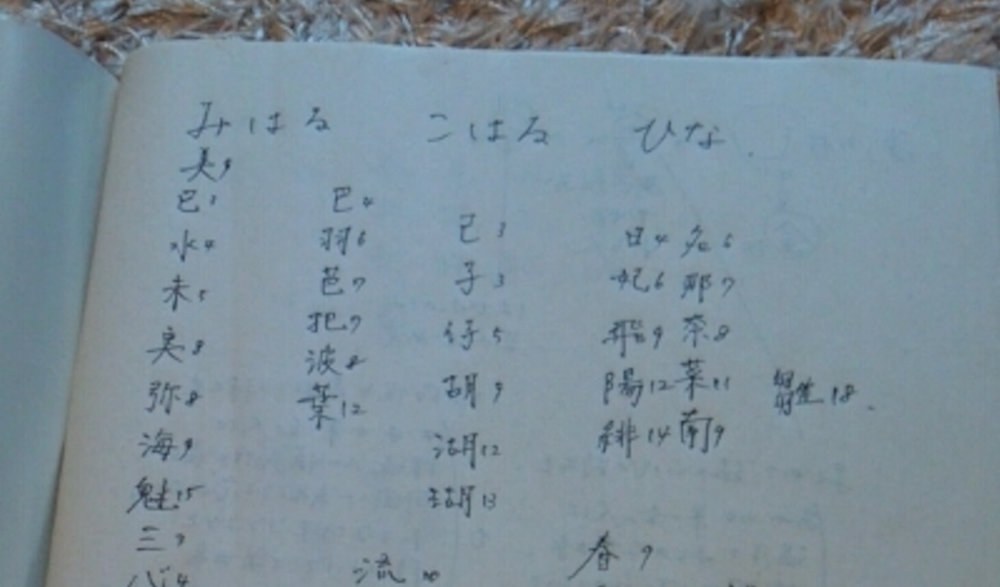 みはる こはる ひな
美9
巳3 巴4
水4 羽6 己3 日4 名6
未5 芭7 子3 妃6 那7
実8 把7 仔5 飛9 奈8
弥8 波8 胡9 陽12 菜11 雛18
海9 葉12 湖12 緋14 南9
魅15 瑚13
三3
流10 春9